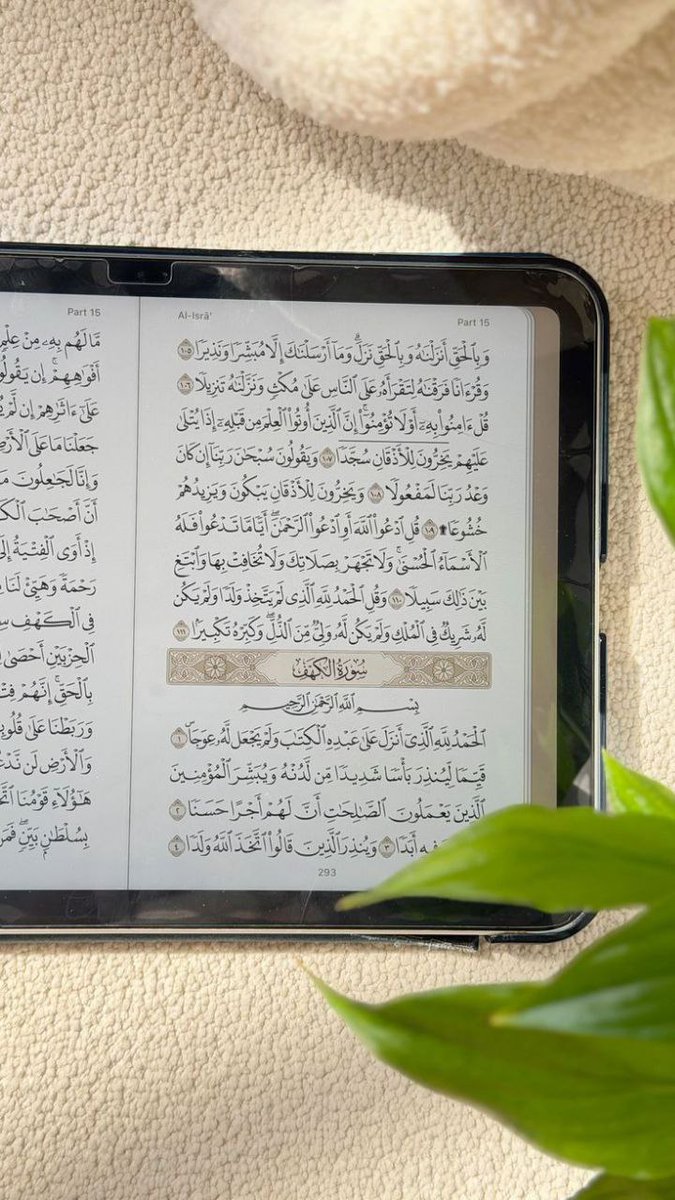 Al-Isrā'
Part 15
وَبِٱلْحَقِّ أَنزَلْنَـٰهُ وَبِٱلْحَقِّ نَزَلَ ۗ وَمَآ أَرْسَلْنَـٰكَ إِلَّا مُبَشِّرًا وَنَذِيرًا ١٠٥
وَقُرْءَانًا فَرَقْنَـٰهُ لِتَقْرَأَهُۥ عَلَى ٱلنَّاسِ عَلَىٰ مُكْثٍ وَنَزَّلْنَـٰهُ تَنزِيلًا ١٠٦
قُلْ ءَامِنُوا۟ بِهِۦٓ أَوْ لَا تُؤْمِنُوٓا۟ ۚ إِنَّ ٱلَّذِينَ أُوتُوا۟ ٱلْعِلْمَ مِن قَبْلِهِۦٓ إِذَا يُتْلَىٰ
عَلَيْهِمْ يَخِرُّونَ لِلْأَذْقَانِ سُجَّدًا ١٠٧ وَيَقُولُونَ سُبْحَـٰنَ رَبِّنَآ إِن كَانَ
وَعْدُ رَبِّنَا لَمَفْعُولًا ١٠٨ وَيَخِرُّونَ لِلْأَذْقَانِ يَبْكُونَ وَيَزِيدُهُمْ
خُشُوعًا ۩ ١٠٩ قُلِ ٱدْعُوا۟ ٱللَّهَ أَوِ ٱدْعُوا۟ ٱلرَّحْمَـٰنَ ۖ أَيًّا مَّا تَدْعُوا۟ فَلَهُ
ٱلْأَسْمَآءُ ٱلْحُسْنَىٰ ۚ وَلَا تَجْهَرْ بِصَلَاتِكَ وَلَا تُخَافِتْ بِهَا وَٱبْتَغِ
بَيْنَ ذَٰلِكَ سَبِيلًا ١١٠ وَقُلِ ٱلْحَمْدُ لِلَّهِ ٱلَّذِى لَمْ يَتَّخِذْ وَلَدًا وَلَمْ يَكُن
لَّهُۥ شَرِيكٌ فِى ٱلْمُلْكِ وَلَمْ يَكُن لَّهُۥ وَلِىٌّ مِّنَ ٱلذُّلِّ ۖ وَكَبِّرْهُ تَكْبِيرًۢا ١١١
سُورَةُ الكَهْفِ
بِسْمِ ٱللَّهِ ٱلرَّحْمَـٰنِ ٱلرَّحِيمِ
ٱلْحَمْدُ لِلَّهِ ٱلَّذِىٓ أَنزَلَ عَلَىٰ عَبْدِهِ ٱلْكِتَـٰبَ وَلَمْ يَجْعَل لَّهُۥ عِوَجَا ۜ ١
قَيِّمًا لِّيُنذِرَ بَأْسًا شَدِيدًا مِّن لَّدُنْهُ وَيُبَشِّرَ ٱلْمُؤْمِنِينَ
ٱلَّذِينَ يَعْمَلُونَ ٱلصَّـٰلِحَـٰتِ أَنَّ لَهُمْ أَجْرًا حَسَنًا ٢
فِيهِ أَبَدًا ٣ وَيُنذِرَ ٱلَّذِينَ قَالُوا۟ ٱتَّخَذَ ٱللَّهُ وَلَدًا ٤
293
Part 15
مَّا لَهُم بِهِۦ مِنْ عِلْمٍ
أَفْوَٰهِهِمْ ۚ إِن يَقُولُو
عَلَىٰٓ ءَاثَـٰرِهِمْ إِن لَّمْ
جَعَلْنَا مَا عَلَى ٱلْأَرْضِ
وَإِنَّا لَجَـٰعِلُونَ
أَنَّ أَصْحَـٰبَ
إِذْ أَوَى ٱلْفِتْيَةُ
رَحْمَةً وَهَيِّئْ لَنَا
فِى ٱلْكَهْفِ
ٱلْحِزْبَيْنِ أَحْصَىٰ
بِٱلْحَقِّ ۚ إِنَّهُمْ
وَرَبَطْنَا عَلَىٰ
وَٱلْأَرْضِ لَن
هَـٰٓؤُلَآءِ قَوْمُنَا
بِسُلْطَـٰنٍۭ بَيِّنٍ ۖ